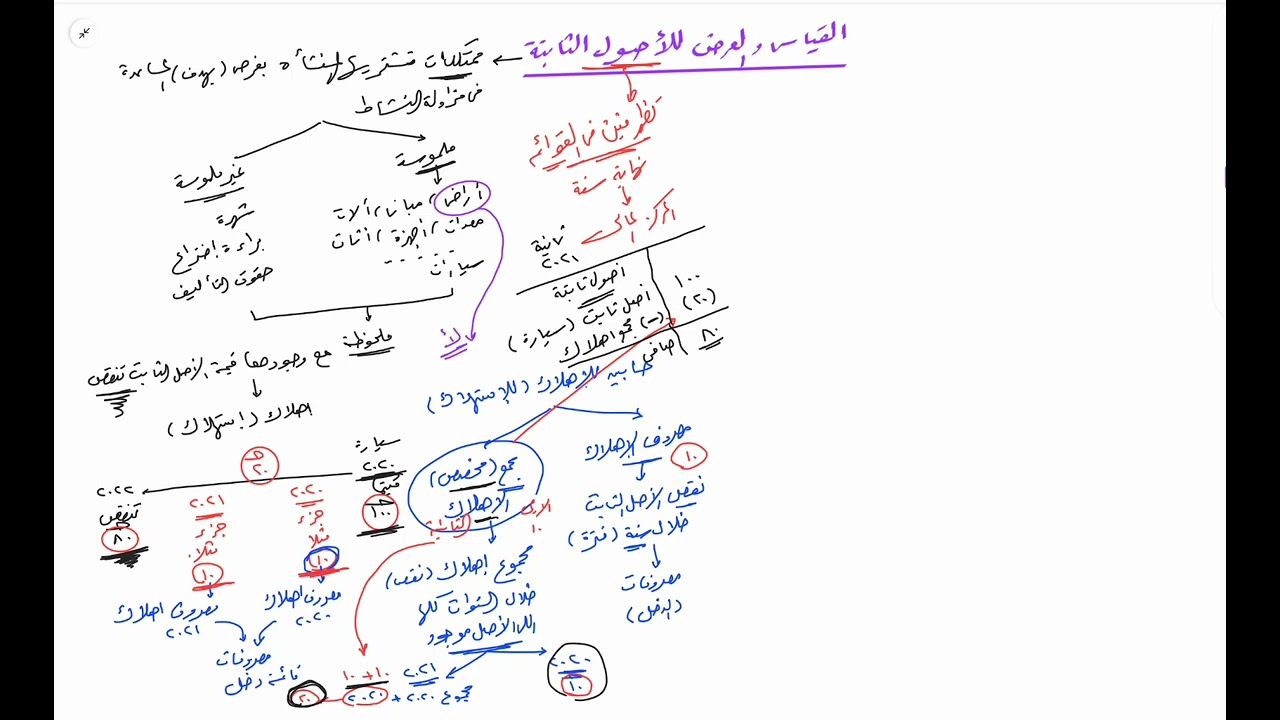 القياس والعرض للأصول الثابتة
ممتلكات تشتريها المنشأة بغرض (بهدف) المساعدة
فى مزاولة النشاط
ملموسة
أراضى، مبانى، آلات
معدات، أجهزة، أثاث
سيارات
غير ملموسة
شهرة
براءة اختراع
حقوق التأليف
لأ
ملحوظة
مع وجودها قيمة الأصل الثابت تنقص
اهلاك (استهلاك)
فى القوائم
نهاية سنة
المركز المالى
ثانية
٢٠٢١
أصول ثابتة
أصل ثابت (سيارة)
١٠٠
(-) مجمع اهلاك
(٢٠)
صافى
٨٠
حسابين للإهلاك (للاستهلاك)
مصروف الإهلاك
١٠
نقص الأصل الثابت
خلال سنة (فترة)
مصروفات
(الدخل)
مجمع (مخصص)
الإهلاك
الأولى
١٠
الثانية
مجموع إهلاك (نقص)
خلال السنوات كلها
اللى الأصل موجود
٢٠٢٠
١٠
٢٠٢١
١٠+١٠
مجموع ٢٠٢٠ + ٢٠٢١
٢٠
سيارة
٢٠٢٠
قيمتها
١٠٠
٢٠
٢٠٢٢
تنقص
٨٠
٢٠٢٠
جزء
مثلا
١٠
٢٠٢١
جزء
مثلا
١٠
مصروف اهلاك
٢٠٢٠
مصروف اهلاك
٢٠٢١
مصروفات
قائمة دخل